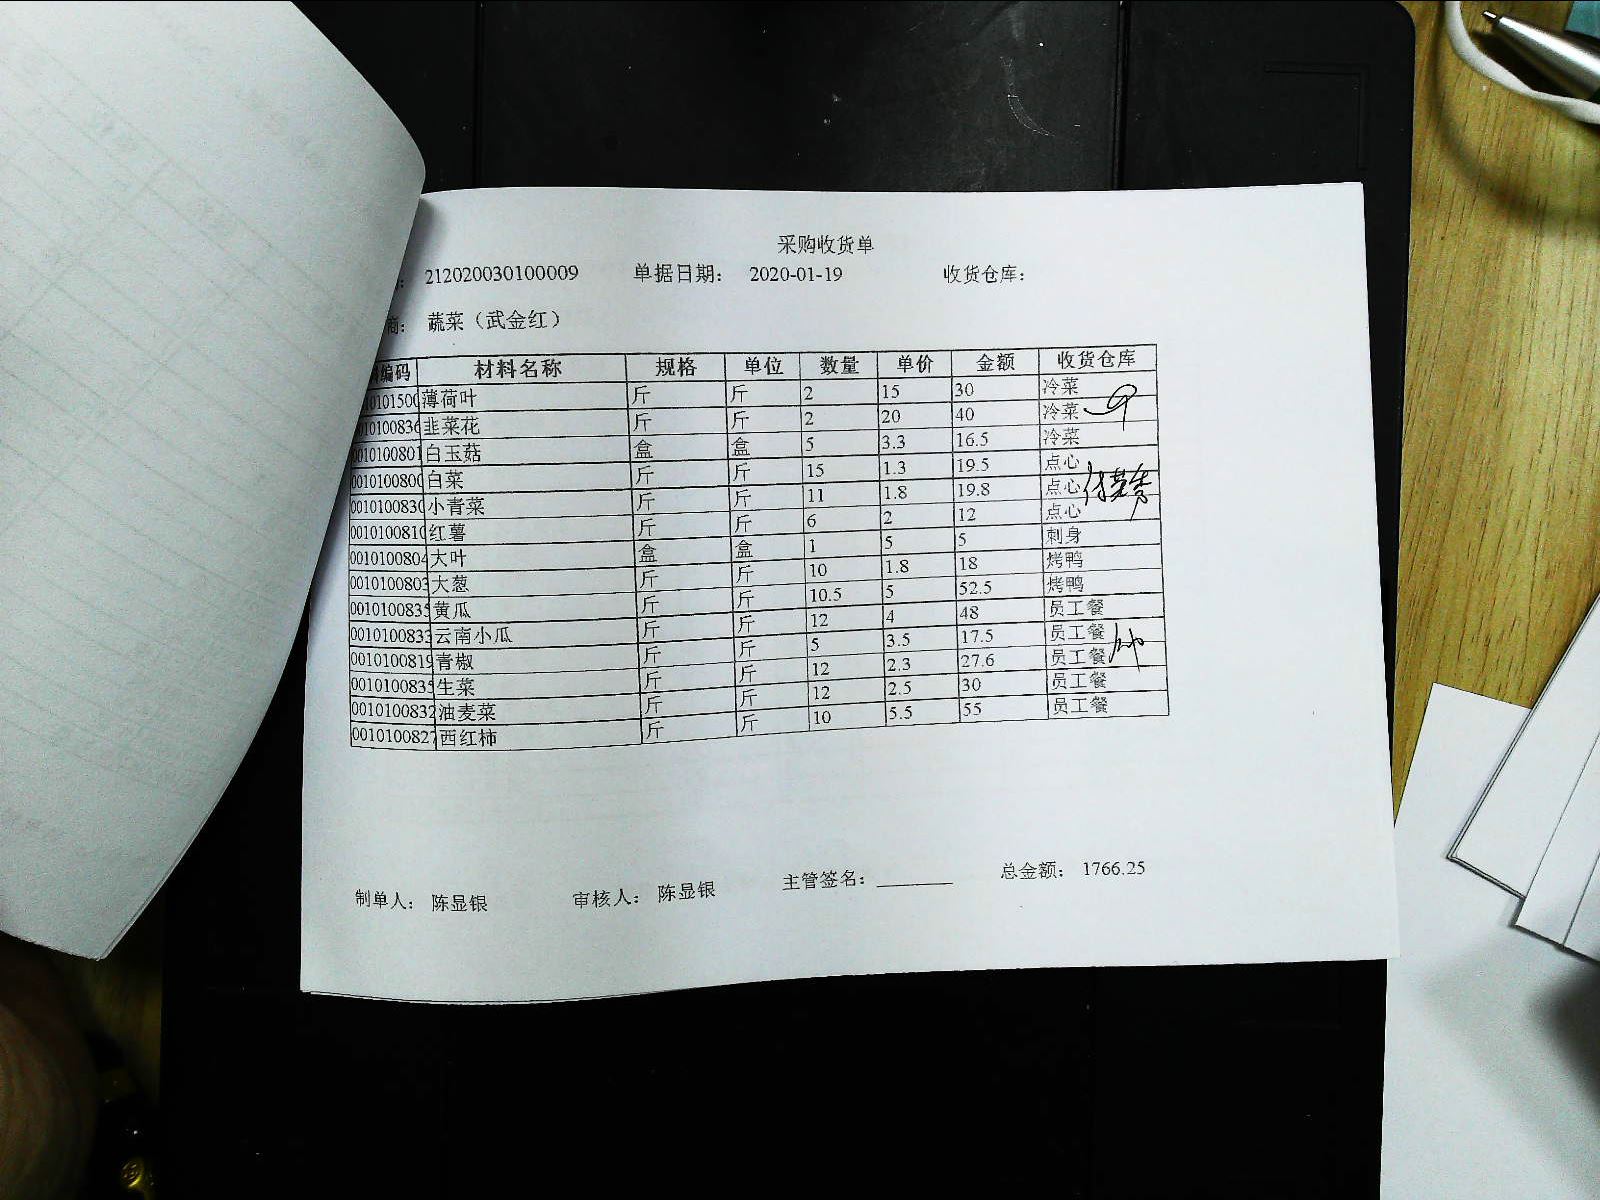 采购收货单
212020030100009 单据日期: 2020-01-19 收货仓库:
商: 蔬菜（武金红）
编码 材料名称 规格 单位 数量 单价 金额 收货仓库
薄荷叶 斤 斤 2 15 30 冷菜
韭菜花 斤 斤 2 20 40 冷菜
白玉菇 盒 盒 5 3.3 16.5 冷菜
白菜 斤 斤 15 1.3 19.5 点心
001010083 小青菜 斤 斤 11 1.8 19.8 点心
001010081 红薯 斤 斤 6 2 12 点心
001010080 大叶 盒 盒 1 5 5 刺身
0010100803 大葱 斤 斤 10 1.8 18 烤鸭
0010100835 黄瓜 斤 斤 10.5 5 52.5 烤鸭
0010100833 云南小瓜 斤 斤 12 4 48 员工餐
0010100819 青椒 斤 斤 5 3.5 17.5 员工餐
0010100835 生菜 斤 斤 12 2.3 27.6 员工餐
0010100832 油麦菜 斤 斤 12 2.5 30 员工餐
0010100827 西红柿 斤 斤 10 5.5 55 员工餐
制单人: 陈显银 审核人: 陈显银 主管签名: 总金额: 1766.25